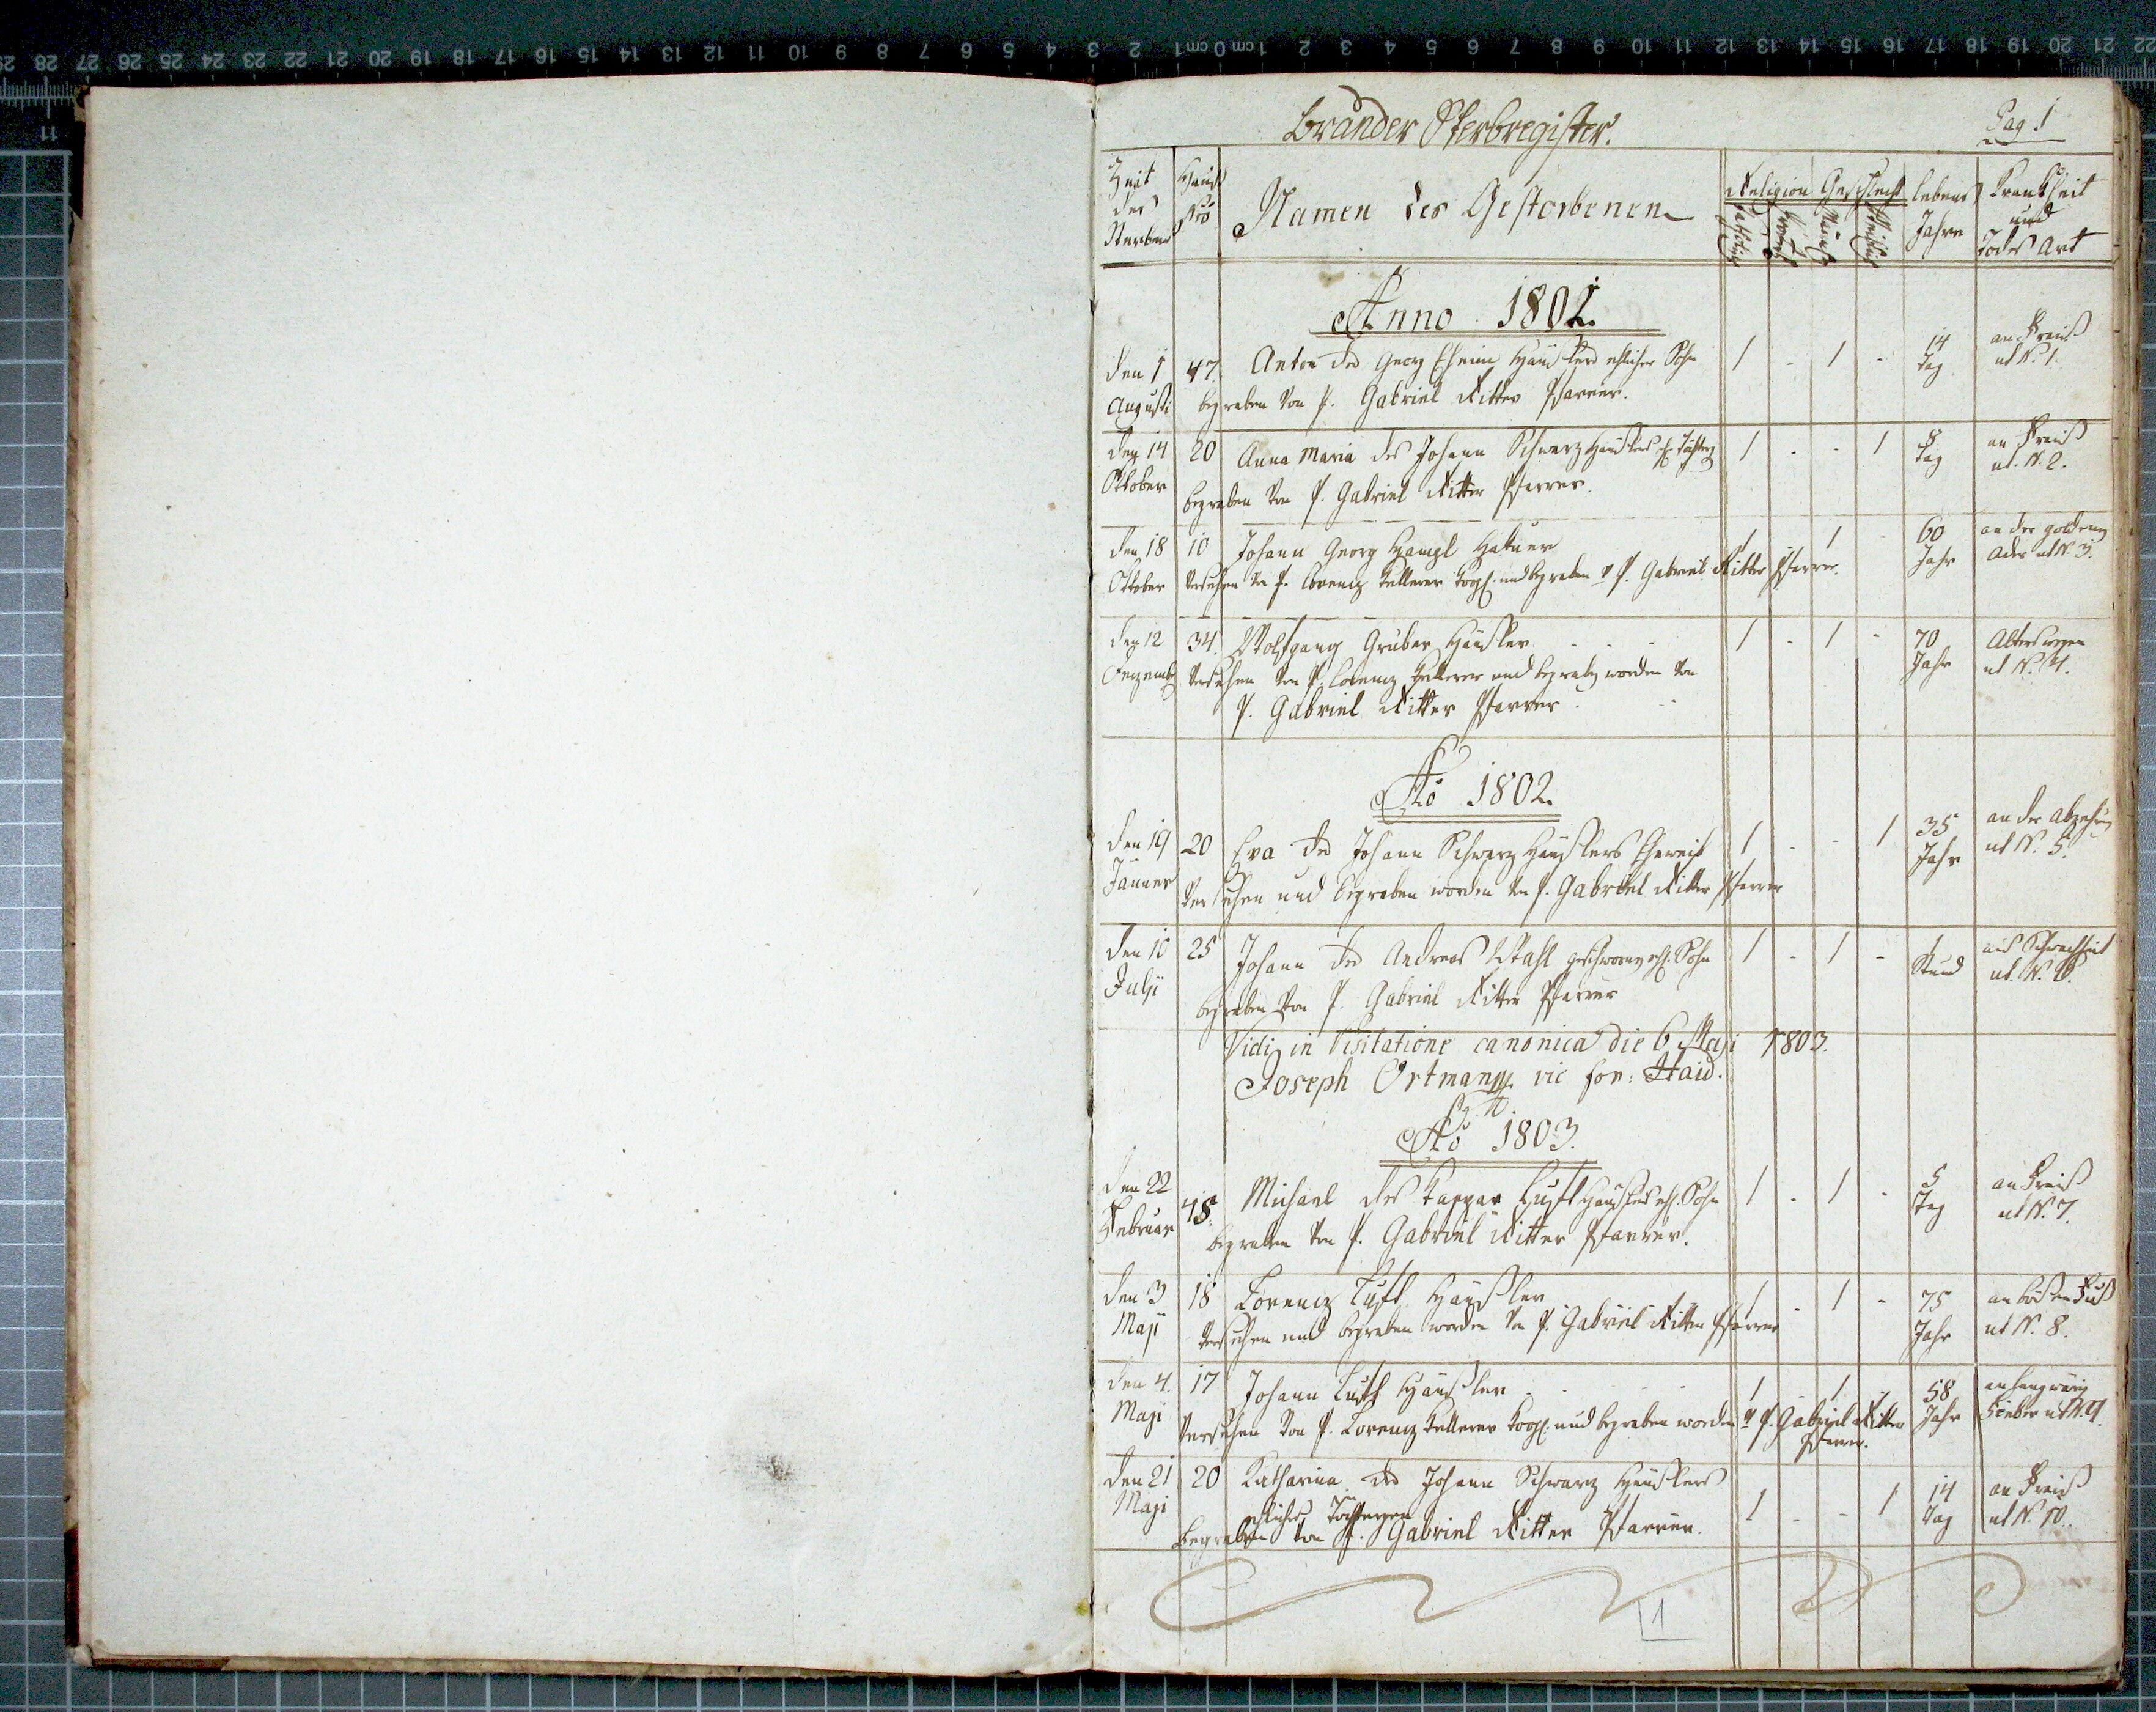 Brander Sterbregister.
Pag. 1
Zeit des Sterbens
Hauß Nro
Namen des Gestorbenen
Religion
Geschlecht
Lebens Jahre
Krankheit und Todes Art
Anno 1801.
den 1 47. Anton des Georg Häuslers ehlicher Sohn 1 - 1 - 14 Tag an Frais ut N. 1.
Augusti begraben von P. Gabriel Ritter Pfarrer.
den 14 20 Anna Maria des Johann Schwarz Häuslers ehl. Tochter 1 - - 1 8 Tag an Frais ut N. 2.
Oktober begraben von P. Gabriel Ritter Pfarrer.
den 18 10 Johann Georg Hampl 1 1 - 60 Jahr an der goldenen Ader ut N. 3.
Oktober versehen von P. Lorenz Kellerer Koop. und begraben v P. Gabriel Ritter Pfarrer.
den 12 34. Wolfgang Gruber Häusler 1 - 1 - 70 Jahr Alterswegen ut N. 4.
Dezemb versehen von P. Lorenz Kellerer und begraben worden von
P. Gabriel Ritter Pfarrer
Ao 1802.
den 19 20 Eva des Johann Schwarz Häuslers Eheweib 1 - - 1 35 Jahr an der Abzehrung ut N. 5.
Jänner versehen und begraben worden von P. Gabriel Ritter Pfarrer
den 10 25 Johann des Andreas Stahl ehl. Sohn 1 - 1 - 1 Stund aus Schwachheit ut N. 6.
Julii begraben von P. Gabriel Ritter Pfarrer
Vidi in Visitatione canonica die 6 Maji 1803.
Joseph Ortmann vic for: Haid.
Ao 1803.
den 22 48. Michael des Kaspar Luft Häuslers ehl. Sohn 1 - 1 - 5 Tag an Frais ut N. 7.
Februar begraben von P. Gabriel Ritter Pfarrer.
den 3 18 Lorenz Luft Häusler 1 - 1 - 75 Jahr an bösen Fuß ut N. 8.
Maji versehen und begraben worden von P. Gabriel Ritter Pfarrer
den 4. 17 Johann Luft Häusler 1 1 - 58 Jahr an Fieber ut N. 9.
Maji versehen von P. Lorenz Kellerer Koop. und begraben worden v P. Gabriel Ritter
Pfarrer.
den 21 20 Katharina des Johann Schwarz Häuslers 1 - - 1 14 Tag an Frais ut N. 10.
Maji ehliches Töchterchen
begraben von P. Gabriel Ritter Pfarrer.
1